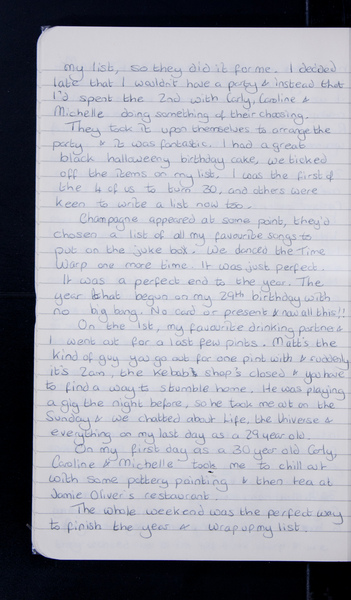 my list, so they did it for me. I decided
late that I wouldn't have a party & instead that
I'd spent the 2nd with Carly, Caroline &
Michelle doing something of their choosing.
They took it upon themselves to arrange the
party & it was fantastic. I had a great
black halloweeny birthday cake, we ticked
off the items on my list. I was the first of
the 4 of us to turn 30, and others were
keen to write a list now too.
Champagne appeared at some point, they'd
chosen a list of all my favourite songs to
put on the juke box. We danced the Time
Warp one more time. It was just perfect.
It was a perfect end to the year. The
year that began on my 29th birthday with
no big bang. No card or present & now all this!!
On the 1st, my favourite drinking partner &
I went out for a last few pints. Matt's the
kind of guy you go out for one pint with & suddenly
it's 2am, the kebab shop's closed & you have
to find a way to stumble home. He was playing
a gig the night before, so he took me out on the
Sunday & we chatted about Life, the Universe &
everything on my last day as a 29 year old.
On my first day as a 30 year old Carly,
Caroline & Michelle took me to chill out
with some pottery painting & then tea at
Jamie Oliver's restaurant.
The whole weekend was the perfect way
to finish the year & wrap up my list.